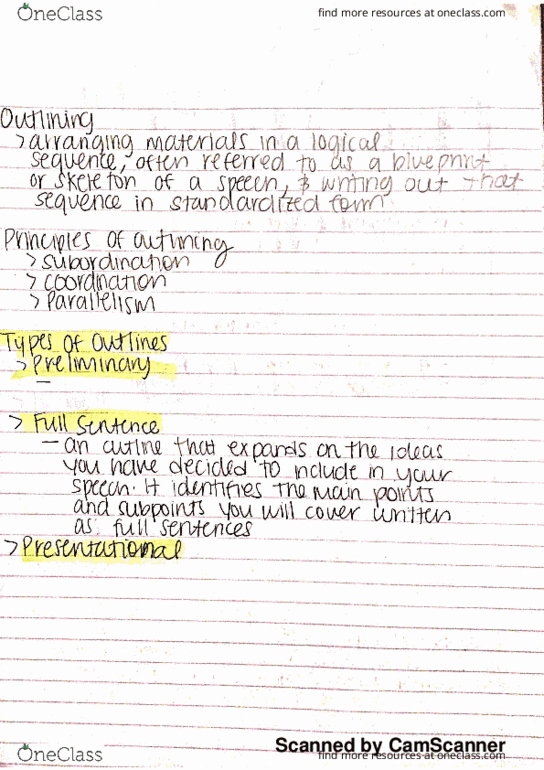 OneClass
find more resources at oneclass.com
Outlining
> arranging materials in a logical
sequence, often referred to as a blueprint
or skeleton of a speech, & writing out that
sequence in standardized form
Principles of outlining
> subordination
> coordination
> Parallelism
Types of Outlines
> Preliminary
—
> Full Sentence
— an outline that expands on the ideas
you have decided to include in your
speech. It identifies the main points
and subpoints you will cover written
as full sentences
> Presentational
Scanned by CamScanner
OneClass
find more resources at oneclass.com